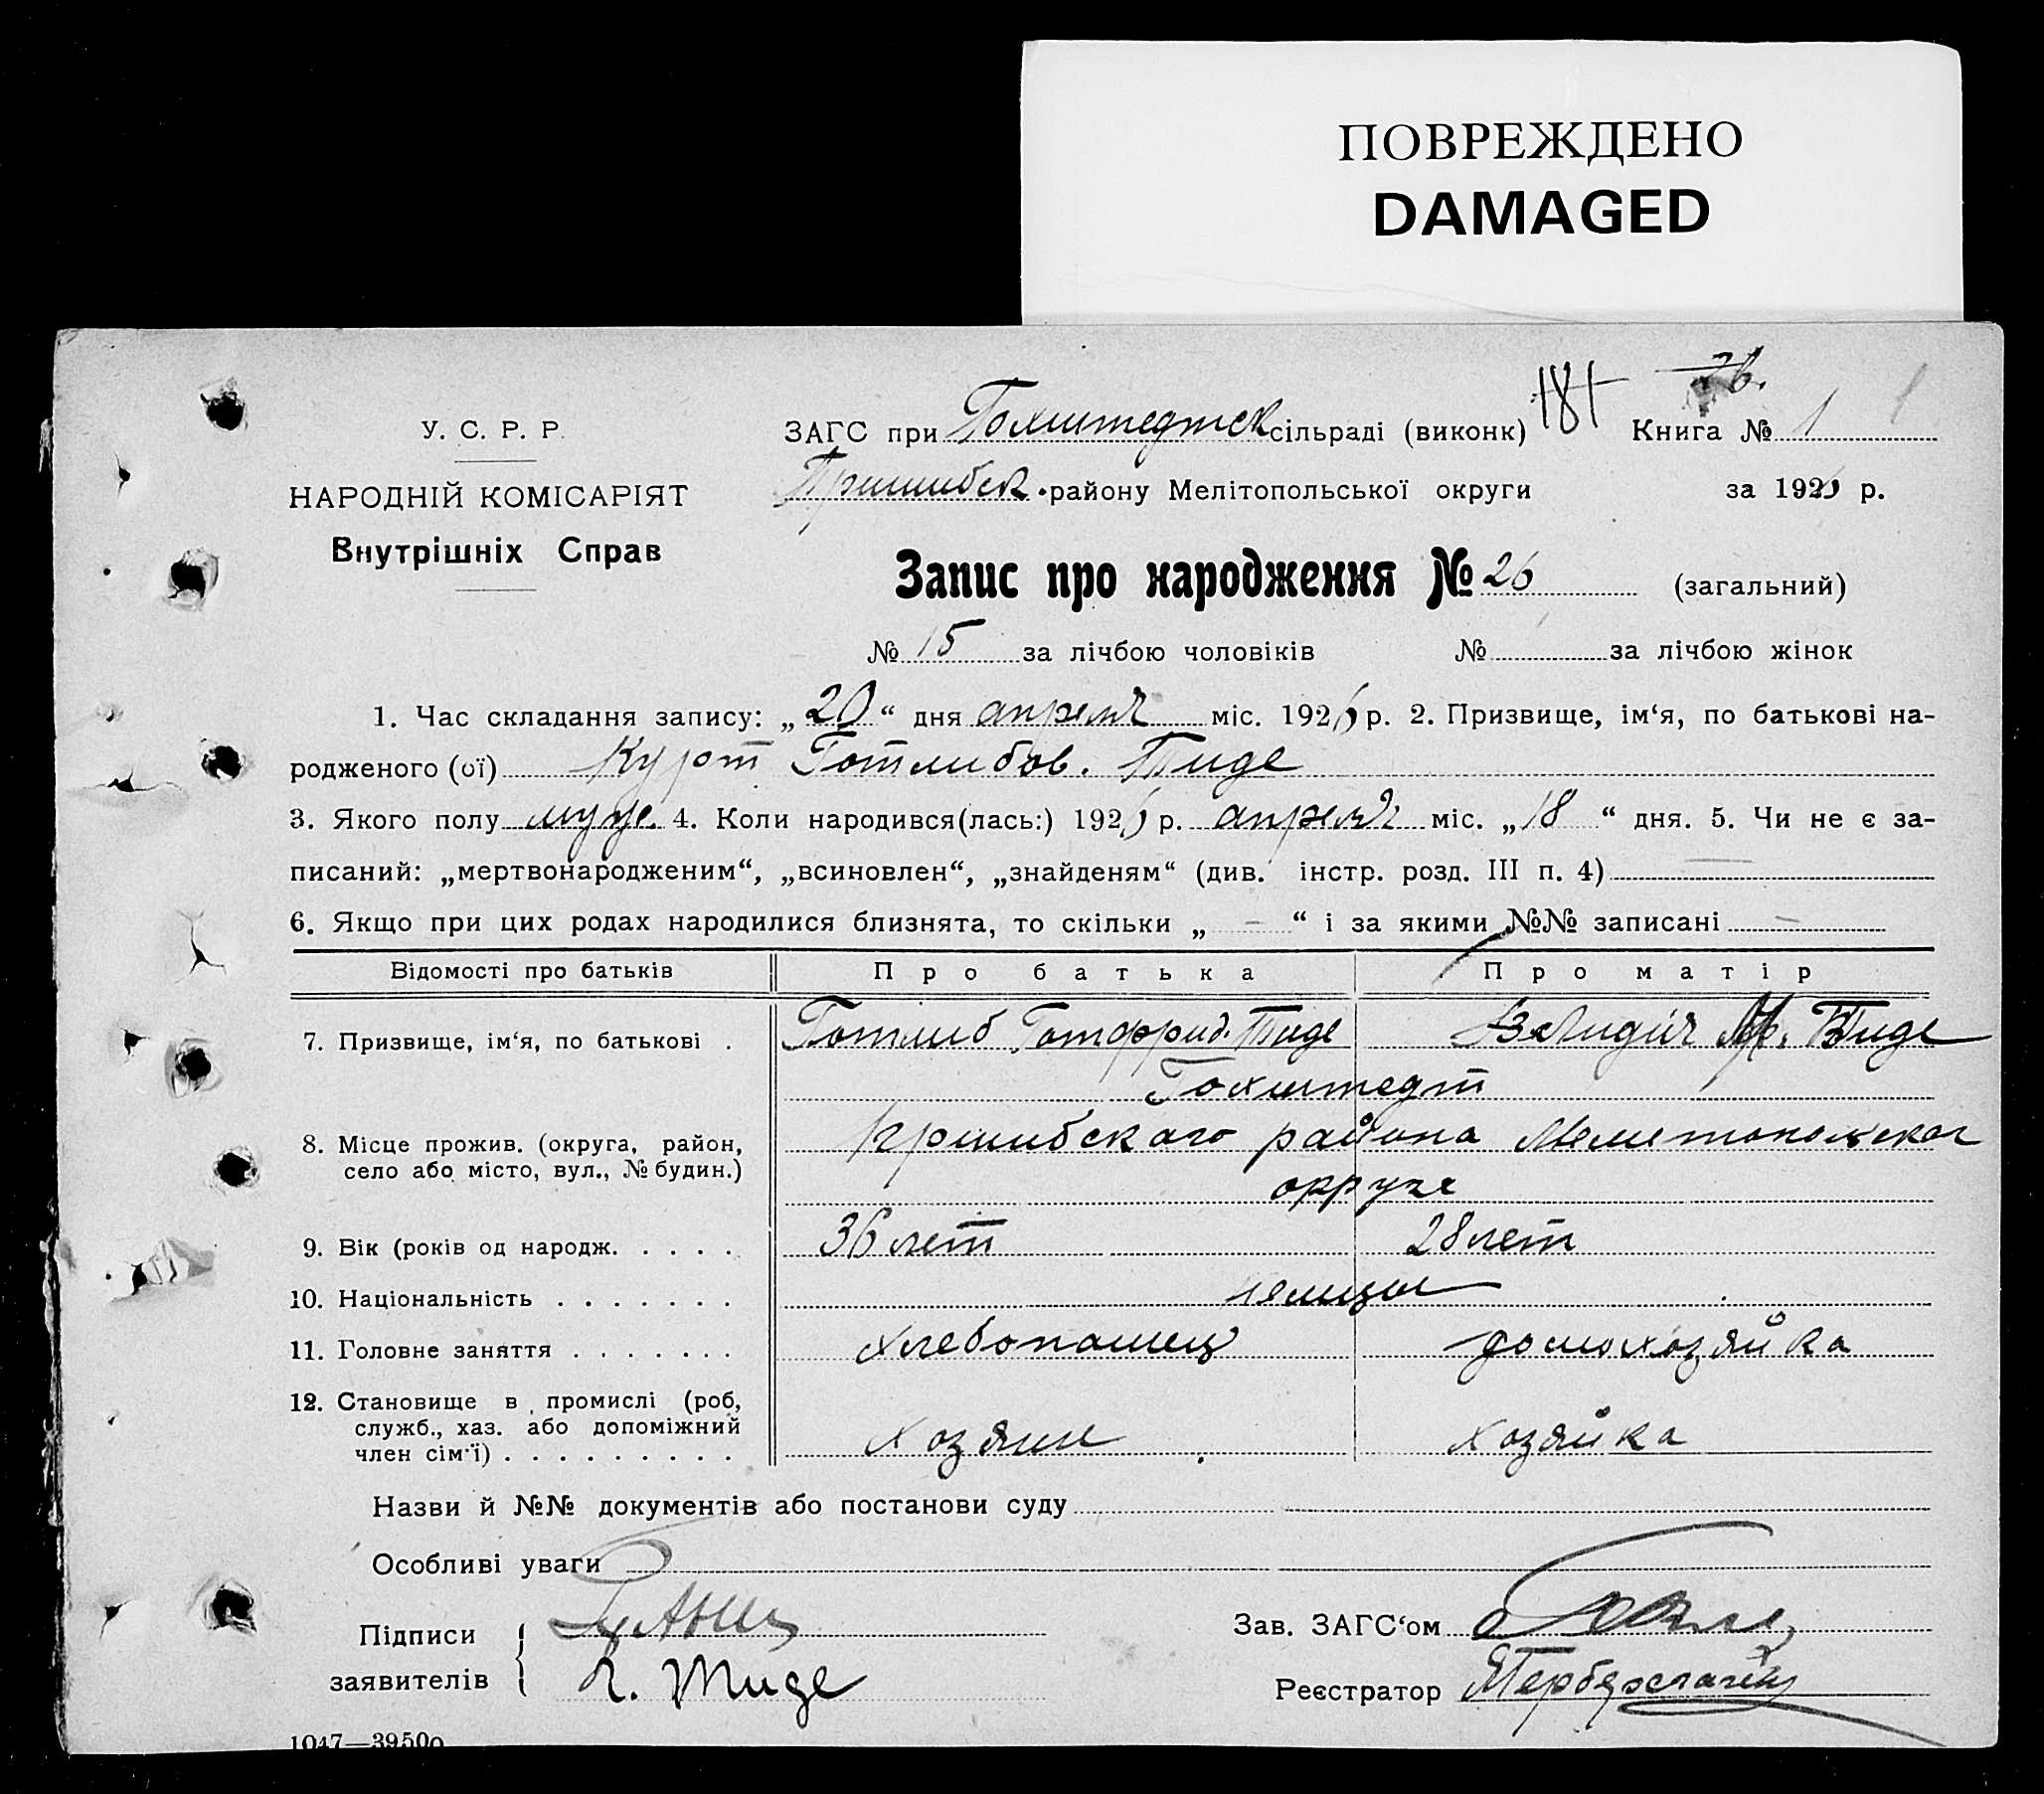 ПОВРЕЖДЕНО
DAMAGED
У. С. Р. Р.
НАРОДНІЙ КОМІСАРІЯТ
Внутрішніх Справ
ЗАГС при Гохштедтск сільраді (виконк) 181 Книга № 1
Пришибск. району Мелітопольської округи за 192 р.
Запис про народження № 26 (загальний)
№ 15 за лічбою чоловіків № за лічбою жінок
1. Час складання запису: „20“ дня апреля міс. 192 р. 2. Призвище, ім‘я, по батькові на-
родженого (ої) Курт Готлибов. Тиде
3. Якого полу муж. 4. Коли народився(лась:) 192 р. апреля міс. „18“ дня. 5. Чи не є за-
писаний: „мертвонародженим“, „всиновлен“, „знайденям“ (див. інстр. розд. III п. 4) —
6. Якщо при цих родах народилися близнята, то скільки „ – “ і за якими №№ записані –
Відомості про батьків Про батька Про матір
7. Призвище, ім‘я, по батькові . Готлиб Готфрид. Тиде Лидия Тиде
Гохштедт
8. Місце прожив. (округа, район, село або місто, вул., № будин.) Пришибского района Мелитопольской
округе
9. Вік (років од народж. . . . . 36 лет 28 лет
10. Національність . . . . . . . немцы
11. Головне заняття . . . . . . . хлебопашец домохозяйка
12. Становище в промислі (роб,
служб., хаз. або допоміжний
член сім‘ї) . . . . . . . . . хозяин хозяйка
Назви й №№ документів або постанови суду
Особливі уваги
Підписи
заявителів Г. Тиде
Зав. ЗАГС‘ом
Реєстратор
1047—39500